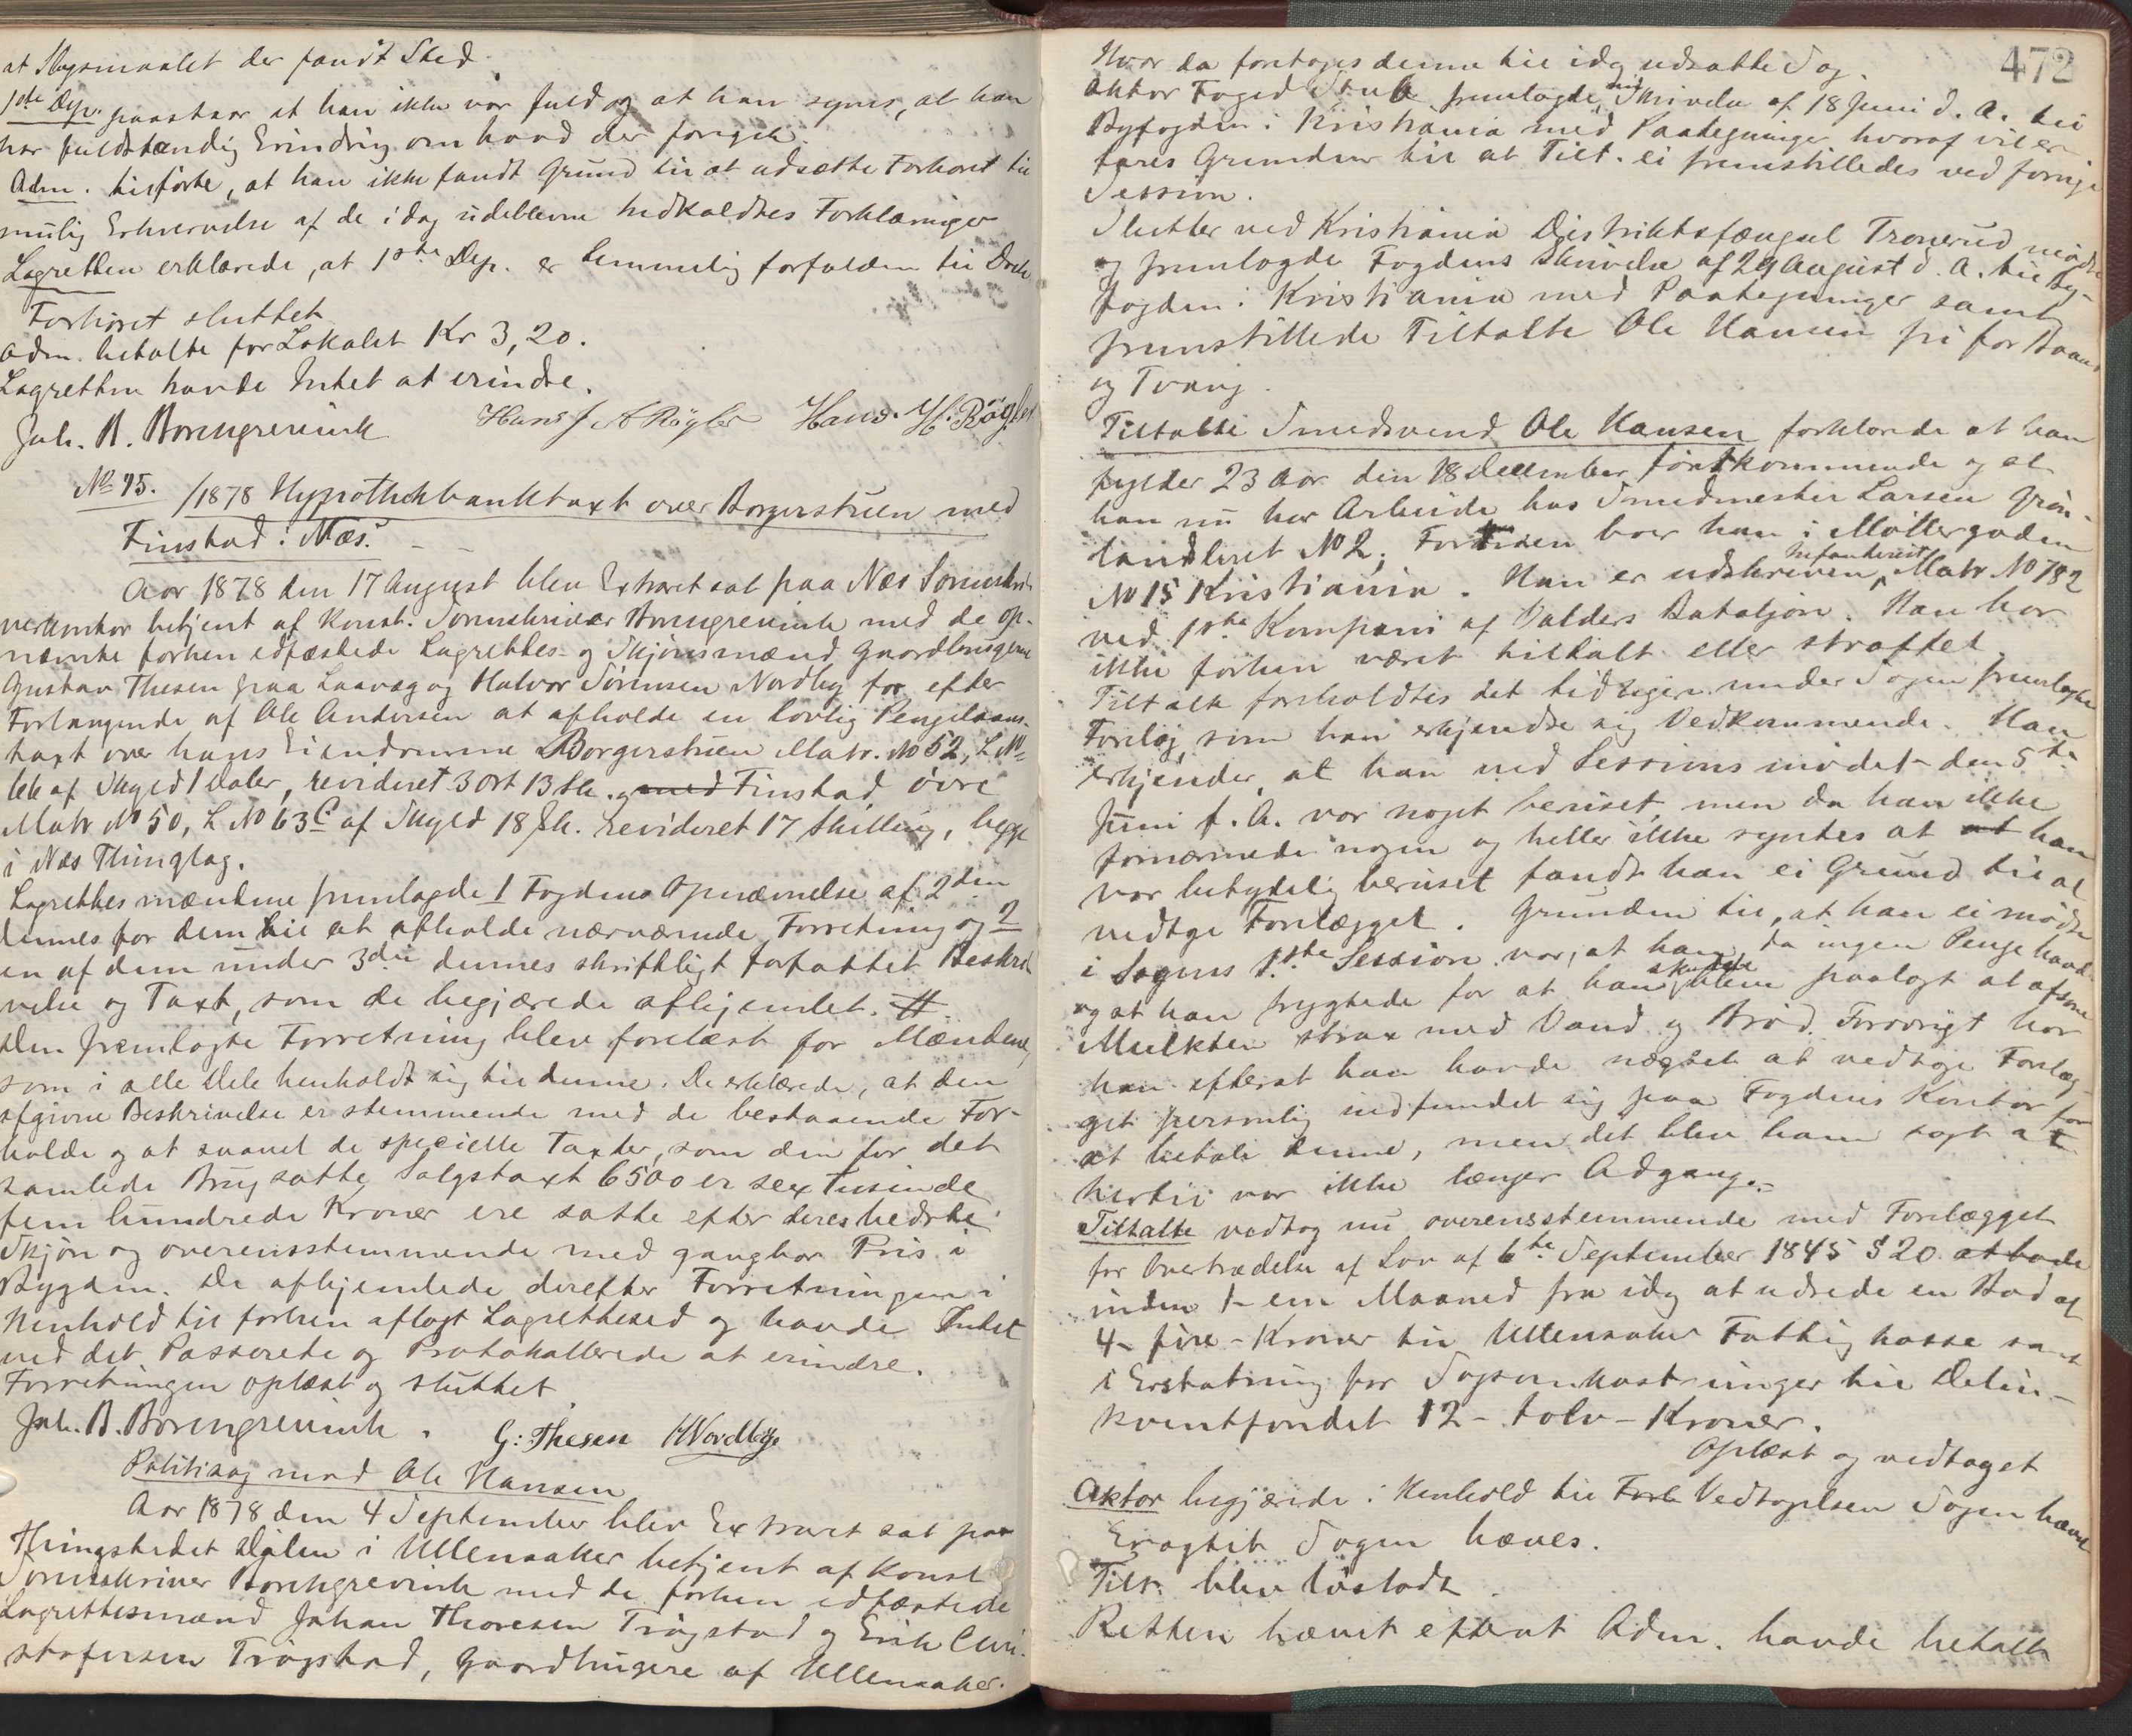 at Slagsmaalet der fandt Sted.
1ste Dep. paastaar at han ikke var fuld og at han synes, at han
har fuldstændig Erindring om hvad der foregik.
Adm. tilførte, at han ikke fandt Grund til at udsætte Forhøret til
mulig Erhvervelse af de idag udeblevne Indkaldtes Forklaringer
Lagretten erklærede, at 1ste Dep. er temmelig forfalden til Drik
Forhøret sluttet
Adm. betalte for Lokalet Kr 3,20.
Lagretten havde Intet at erindre.
Joh. B. Borengrevink Hans J A Røgler Hans H. Røgler
No 95. /1878 Hypothekbanktaxt over Borgerstuen med
Finstad i Næs.
Aar 1878 den 17 August blev Extraret sat paa Næs Sorenskri-
verkontor betjent af Konst. Sorenskriver Borengrevink med de op-
nævnte forhen edfæstede Lagrettes- og Skjønsmænd Gaardbrugerne
Gustav Thesen paa Laavæg og Halvor Sørensen Nordby for efter
Forlangende af Ole Andersen at afholde en lovlig Pengelaans-
taxt over hans Eiendomme Borgerstuen Matr. No 52, L No
af Skyld 1 Daler, revideret 3 Ort 13 sk. og med Finstad øvre
Matr No 50, L No 63c af Skyld 18 sk. revideret 17 Skilling, begge
i Næs Thinglag.
Lagrettesmændene fremlagde 1 Fogdens Opnævnelse af 2den
dennes for dem til at afholde nærværende Forretning og 2
en af dem under 3die dennes skriftligt forfattet Beskri-
velse og Taxt, som de begjærede afhjemlet.
Den fremlagte Forretning blev forelæst for Mændene,
som i alle Dele henholdt sig til denne. De erklærede, at den
afgivne Beskrivelse er stemmende med de bestaaende For-
holde og at saavel de specielle Taxter, som den for det
samlede Brug satte Salgstaxt 6500 er sex Tusinde
fem hundrede Kroner ere satte efter deres bedste
Skjøn og overensstemmende med gangbar Pris i
Bygden. De afhjemlede derefter Forretningen i
Henhold til forhen aflagt Lagrettesed og havde Intet
ved det Passerede og Protokollerede at erindre.
Forretningen oplæst og sluttet
Joh. B. Borengrevink. G: Thesen HNordby
Politisag mod Ole Hansen
Aar 1878 den 4 September blev Extraret sat paa
Thingstedet Dølen i Ullensaker betjent af Konst
Sorenskriver Borengrevink med de forhen edfæstede
Lagrettesmænd Johan Thoresen Trøgstad og Erik Chri-
stofersen Trøgstad, Gaardbrugere af Ullensaker.
472
Hvor da foretages denne til idag udsatte Sag.
Aktor Foged Stub fremlagde sin Skrivelse af 18 Juni d. A. til
Byfogden i Kristiania med Paategninger hvoraf vil er-
fares Grunden til at Tilt. ei fremstilledes ved forrige
Session.
Slutter ved Kristiania Distriktsfængsel Tronerud mødte
og fremlagde Fogdens Skrivelse af 29 August d. A. til By-
fogden i Kristiania med Paategninger samt
fremstillede Tiltalte Ole Hansen fri for Baand
og Tvang.
Tiltalte Smedsvend Ole Hansen forklarede at han
fylder 23 Aar den 18 December førstkommende og at
han nu har Arbeide hos Smedmester Larsen Grøn-
landsleret No 2. Fortiden boer han i Møllergaden
No 15 Kristiania. Han er udskreven Infanterist Matr No 782
ved 1ste Kompani af Valders Bataljon. Han har
ikke forhen været tiltalt eller straffet.
Tiltalte foreholdtes det tidligere under Sagen fremlagte
Forelæg som han erkjendte sig Vedkommende. Han
erkjender, at han ved Sessionsmødet den 5te
Juni d. A. var noget beruset, men da han ikke
fornærmede nogen og heller ikke syntes at at han
var betydelig beruset fandt han ei Grund til at
vedtage Forelægget. Grunden til, at han ei mødte
i Sagens 1ste Session var, at han da ingen Penge havde
og at han frygtede for at han skulde blive paalagt at afsone
Mulkten strax med Vand og Brød. Forøvrigt har
han efterat han havde nægtet at vedtage Forelæg-
get personlig indfundet sig paa Fogdens Kontor for
at betale denne, men det blev ham sagt at
hertil var ikke længer Adgang.
Tiltalte vedtog nu overensstemmende med Forelægget
for Overtrædelse af Lov af 6te September 1845 § 20 at bøde
inden 1 - en Maaned fra idag at udrede en Bod af
4 - fire - Kroner til Ullensaker Fattigkasse samt
i Erstatning for Sagsomkostninger til Delin-
kventfondet 12 - tolv - Kroner.
Oplæst og vedtaget
Aktor begjærede i Henhold til Forl Vedtagelsen Sagen hævet
Eragtet Sagen hæves.
Tilt. blev løsladt.
Retten hævet efterat Adm. havde betalt